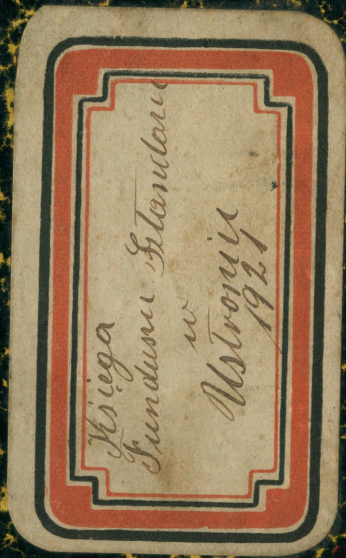 Księga
Funduszu Sztandaru
w
Ustroniu
1921